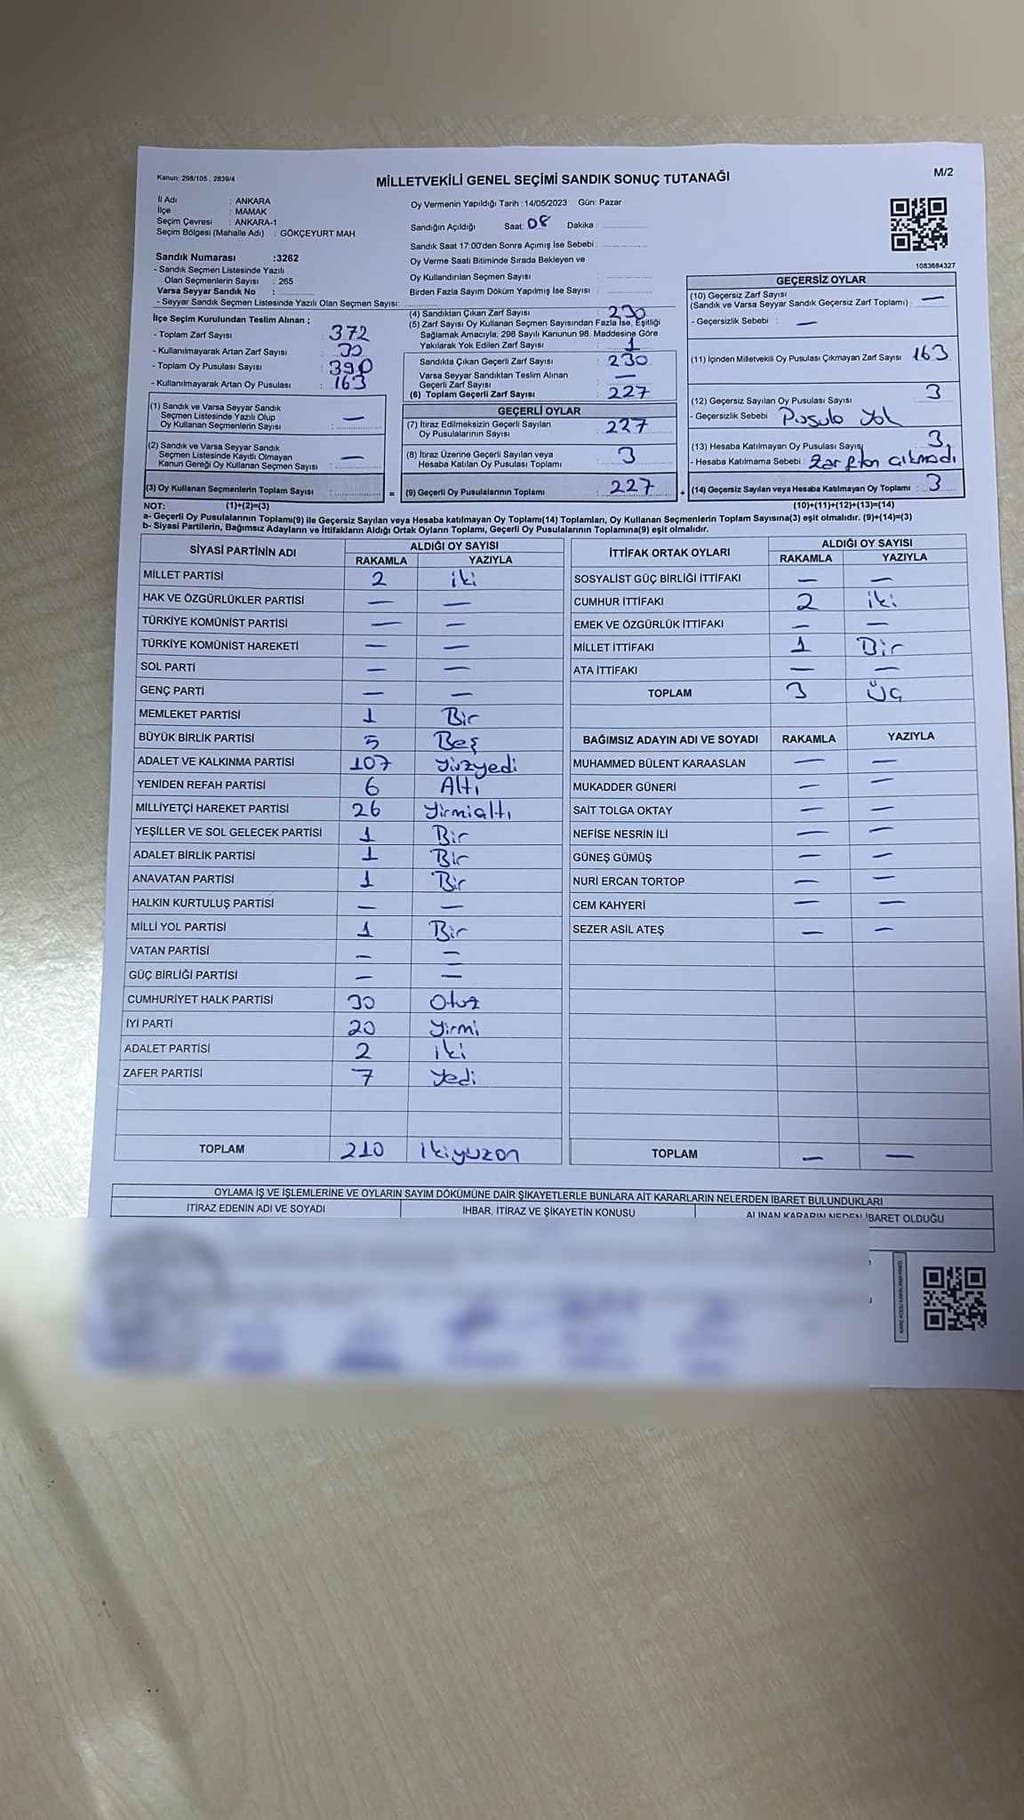 Kanun: 298/105 , 2839/4
MİLLETVEKİLİ GENEL SEÇİMİ SANDIK SONUÇ TUTANAĞI
M/2
İl Adı : ANKARA
İlçe : MAMAK
Seçim Çevresi : ANKARA-1
Seçim Bölgesi (Mahalle Adı) : GÖKÇEYURT MAH.
Sandık Numarası :3262
- Sandık Seçmen Listesinde Yazılı
Olan Seçmenlerin Sayısı : 265
Varsa Seyyar Sandık No :
- Seyyar Sandık Seçmen Listesinde Yazılı Olan Seçmen Sayısı:
Oy Vermenin Yapıldığı Tarih : 14/05/2023 Gün: Pazar
Sandığın Açıldığı Saat: 08 Dakika :
Sandık Saat 17:00'den Sonra Açımış İse Sebebi :
Oy Verme Saati Bitiminde Sırada Bekleyen ve
Oy Kullandırılan Seçmen Sayısı :
Birden Fazla Sayım Döküm Yapılmış İse Sayısı :
1083684327
İlçe Seçim Kurulundan Teslim Alınan ;
- Toplam Zarf Sayısı : 372
- Kullanılmayarak Artan Zarf Sayısı : 30
- Toplam Oy Pusulası Sayısı : 390
- Kullanılmayarak Artan Oy Pusulası : 163
(1) Sandık ve Varsa Seyyar Sandık
Seçmen Listesinde Yazılı Olup
Oy Kullanan Seçmenlerin Sayısı : —
(2) Sandık ve Varsa Seyyar Sandık
Seçmen Listesinde Kayıtlı Olmayan
Kanun Gereği Oy Kullanan Seçmen Sayısı : —
(3) Oy Kullanan Seçmenlerin Toplam Sayısı :
(1)+(2)=(3)
(4) Sandıktan Çıkan Zarf Sayısı : 230
(5) Zarf Sayısı Oy Kullanan Seçmen Sayısından Fazla İse, Eşitliği
Sağlamak Amacıyla; 298 Sayılı Kanunun 98. Maddesine Göre
Yakılarak Yok Edilen Zarf Sayısı : 1
Sandıkta Çıkan Geçerli Zarf Sayısı : 230
Varsa Seyyar Sandıktan Teslim Alınan
Geçerli Zarf Sayısı : —
(6) Toplam Geçerli Zarf Sayısı : 227
GEÇERLİ OYLAR
(7) İtiraz Edilmeksizin Geçerli Sayılan
Oy Pusulalarının Sayısı : 227
(8) İtiraz Üzerine Geçerli Sayılan veya
Hesaba Katılan Oy Pusulası Toplamı : 3
= (9) Geçerli Oy Pusulalarının Toplamı : 227 +
GEÇERSİZ OYLAR
(10) Geçersiz Zarf Sayısı
(Sandık ve Varsa Seyyar Sandık Geçersiz Zarf Toplamı) : —
- Geçersizlik Sebebi : —
(11) İçinden Milletvekili Oy Pusulası Çıkmayan Zarf Sayısı : 163
(12) Geçersiz Sayılan Oy Pusulası Sayısı : 3
- Geçersizlik Sebebi : Pusula Yok
(13) Hesaba Katılmayan Oy Pusulası Sayısı : 3
- Hesaba Katılmama Sebebi : Zarftan çıkmadı
(14) Geçersiz Sayılan veya Hesaba Katılmayan Oy Toplamı : 3
(10)+(11)+(12)+(13)=(14)
NOT:
a- Geçerli Oy Pusulalarının Toplamı(9) ile Geçersiz Sayılan veya Hesaba katılmayan Oy Toplamı(14) Toplamları, Oy Kullanan Seçmenlerin Toplam Sayısına(3) eşit olmalıdır. (9)+(14)=(3)
b- Siyasi Partilerin, Bağımsız Adayların ve İttifakların Aldığı Ortak Oyların Toplamı, Geçerli Oy Pusulalarının Toplamına(9) eşit olmalıdır.
SİYASİ PARTİNİN ADI ALDIĞI OY SAYISI
RAKAMLA YAZIYLA
MİLLET PARTİSİ 2 iki
HAK VE ÖZGÜRLÜKLER PARTİSİ — —
TÜRKİYE KOMÜNİST PARTİSİ — —
TÜRKİYE KOMÜNİST HAREKETİ — —
SOL PARTİ — —
GENÇ PARTİ — —
MEMLEKET PARTİSİ 1 Bir
BÜYÜK BİRLİK PARTİSİ 5 Beş
ADALET VE KALKINMA PARTİSİ 107 yüzyedi
YENİDEN REFAH PARTİSİ 6 Altı
MİLLİYETÇİ HAREKET PARTİSİ 26 yirmialtı
YEŞİLLER VE SOL GELECEK PARTİSİ 1 Bir
ADALET BİRLİK PARTİSİ 1 Bir
ANAVATAN PARTİSİ 1 Bir
HALKIN KURTULUŞ PARTİSİ — —
MİLLİ YOL PARTİSİ 1 Bir
VATAN PARTİSİ — —
GÜÇ BİRLİĞİ PARTİSİ — —
CUMHURİYET HALK PARTİSİ 30 Otuz
İYİ PARTİ 20 yirmi
ADALET PARTİSİ 2 iki
ZAFER PARTİSİ 7 yedi
TOPLAM 210 ikiyüzon
İTTİFAK ORTAK OYLARI ALDIĞI OY SAYISI
RAKAMLA YAZIYLA
SOSYALİST GÜÇ BİRLİĞİ İTTİFAKI — —
CUMHUR İTTİFAKI 2 iki
EMEK VE ÖZGÜRLÜK İTTİFAKI — —
MİLLET İTTİFAKI 1 Bir
ATA İTTİFAKI — —
TOPLAM 3 Üç
BAĞIMSIZ ADAYIN ADI VE SOYADI RAKAMLA YAZIYLA
MUHAMMED BÜLENT KARAASLAN — —
MUKADDER GÜNERİ — —
SAİT TOLGA OKTAY — —
NEFİSE NESRİN İLİ — —
GÜNEŞ GÜMÜŞ — —
NURİ ERCAN TORTOP — —
CEM KAHYERİ — —
SEZER ASİL ATEŞ — —
TOPLAM — —
OYLAMA İŞ VE İŞLEMLERİNE VE OYLARIN SAYIM DÖKÜMÜNE DAİR ŞİKAYETLERLE BUNLARA AİT KARARLARIN NELERDEN İBARET BULUNDUKLARI
İTİRAZ EDENİN ADI VE SOYADI İHBAR, İTİRAZ VE ŞİKAYETİN KONUSU ALINAN KARARIN NEDEN İBARET OLDUĞU